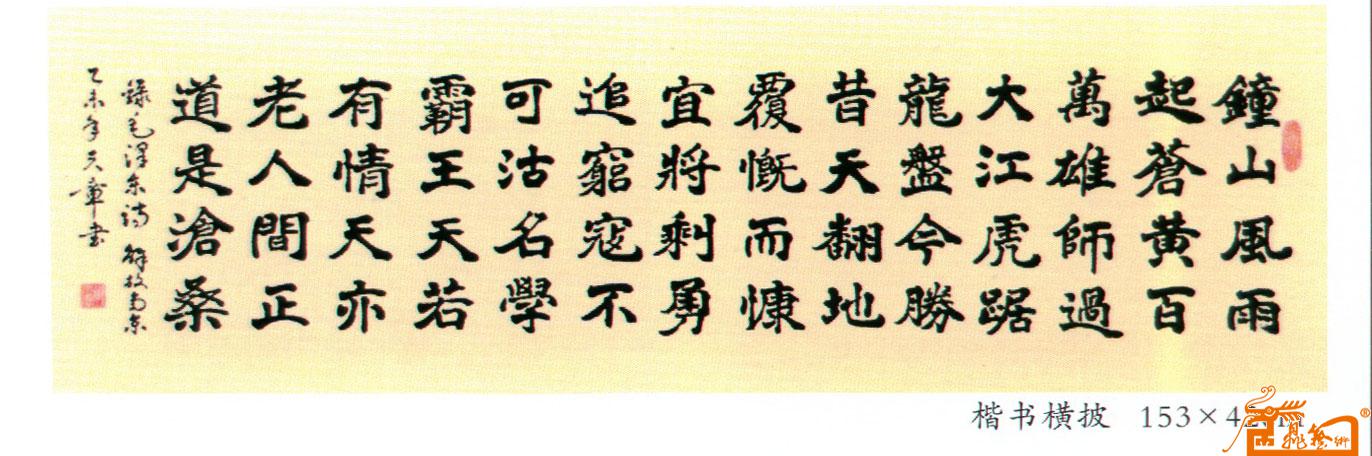 鐘山風雨
起蒼黄百
萬雄師過
大江虎踞
龍盤今勝
昔天翻地
覆慨而慷
宜將剩勇
追窮寇不
可沽名學
霸王天若
有情天亦
老人間正
道是滄桑
録毛澤东詩 解放南京
乙未年天章书
楷书横披 153×42